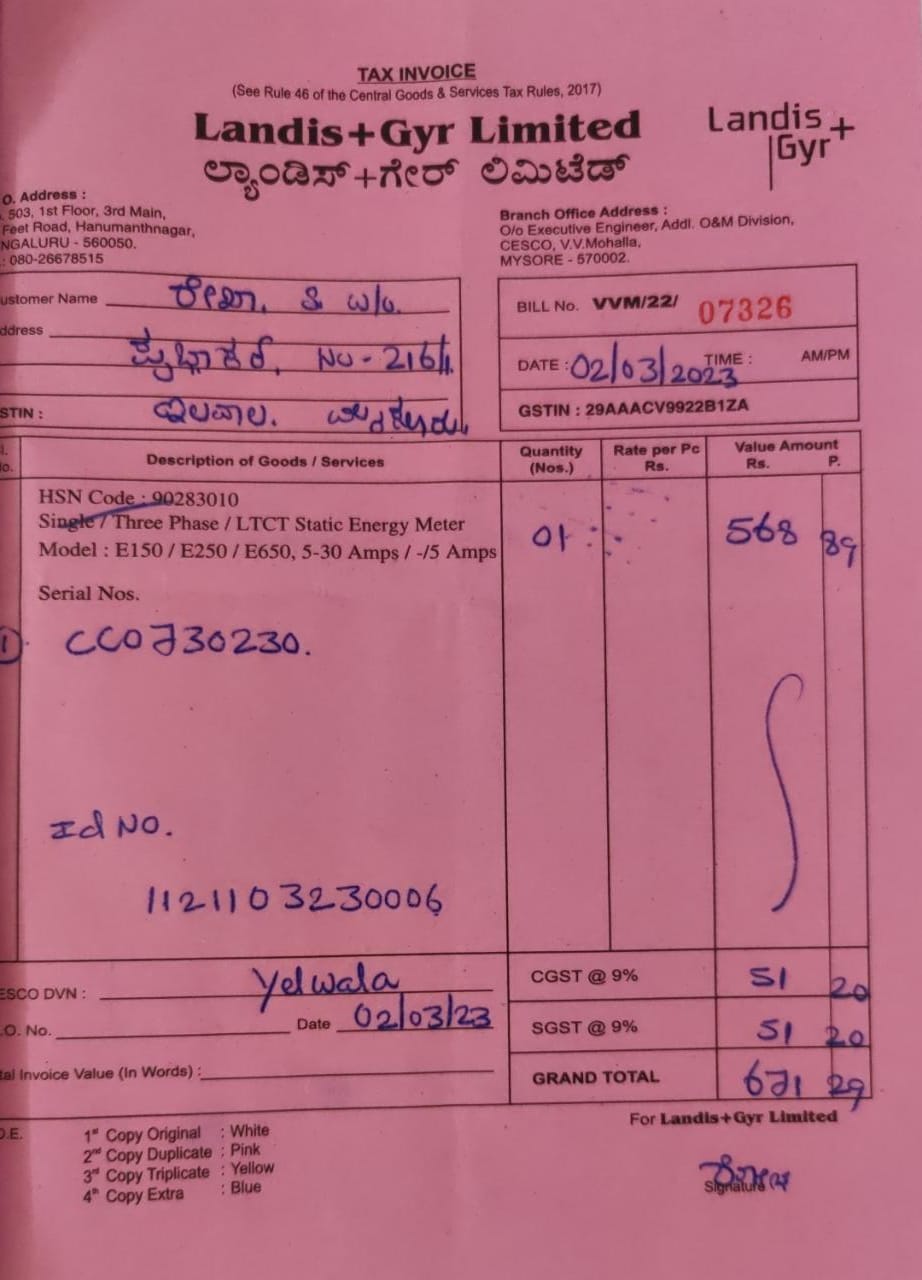 TAX INVOICE
(See Rule 46 of the Central Goods & Services Tax Rules, 2017)
Landis+Gyr Limited
ಲ್ಯಾಂಡಿಸ್+ಗೇರ್ ಲಿಮಿಟೆಡ್
Landis
Gyr+
O. Address :
503, 1st Floor, 3rd Main,
Feet Road, Hanumanthnagar,
NGALURU - 560050.
: 080-26678515
Branch Office Address :
O/o Executive Engineer, Addl. O&M Division,
CESCO, V.V.Mohalla,
MYSORE - 570002.
ustomer Name w/o.
ddress
No - 216/1.
STIN : ಇಲವಾಲ.
BILL No. VVM/22/ 07326
DATE : 02/03/2023 TIME : AM/PM
GSTIN : 29AAACV9922B1ZA
o. Description of Goods / Services Quantity (Nos.) Rate per Pc Rs. Value Amount Rs. P.
HSN Code : 90283010
Single / Three Phase / LTCT Static Energy Meter
Model : E150 / E250 / E650, 5-30 Amps / -/5 Amps 01 568 89
Serial Nos.
1 CC0730230.
Id No.
1121103230006
ESCO DVN : Yelwala CGST @ 9% 51 20
.O. No. Date 02/03/23 SGST @ 9% 51 20
tal Invoice Value (In Words) : GRAND TOTAL 671 29
For Landis+Gyr Limited
.E.
1st Copy Original : White
2nd Copy Duplicate : Pink
3rd Copy Triplicate : Yellow
4th Copy Extra : Blue
Signature